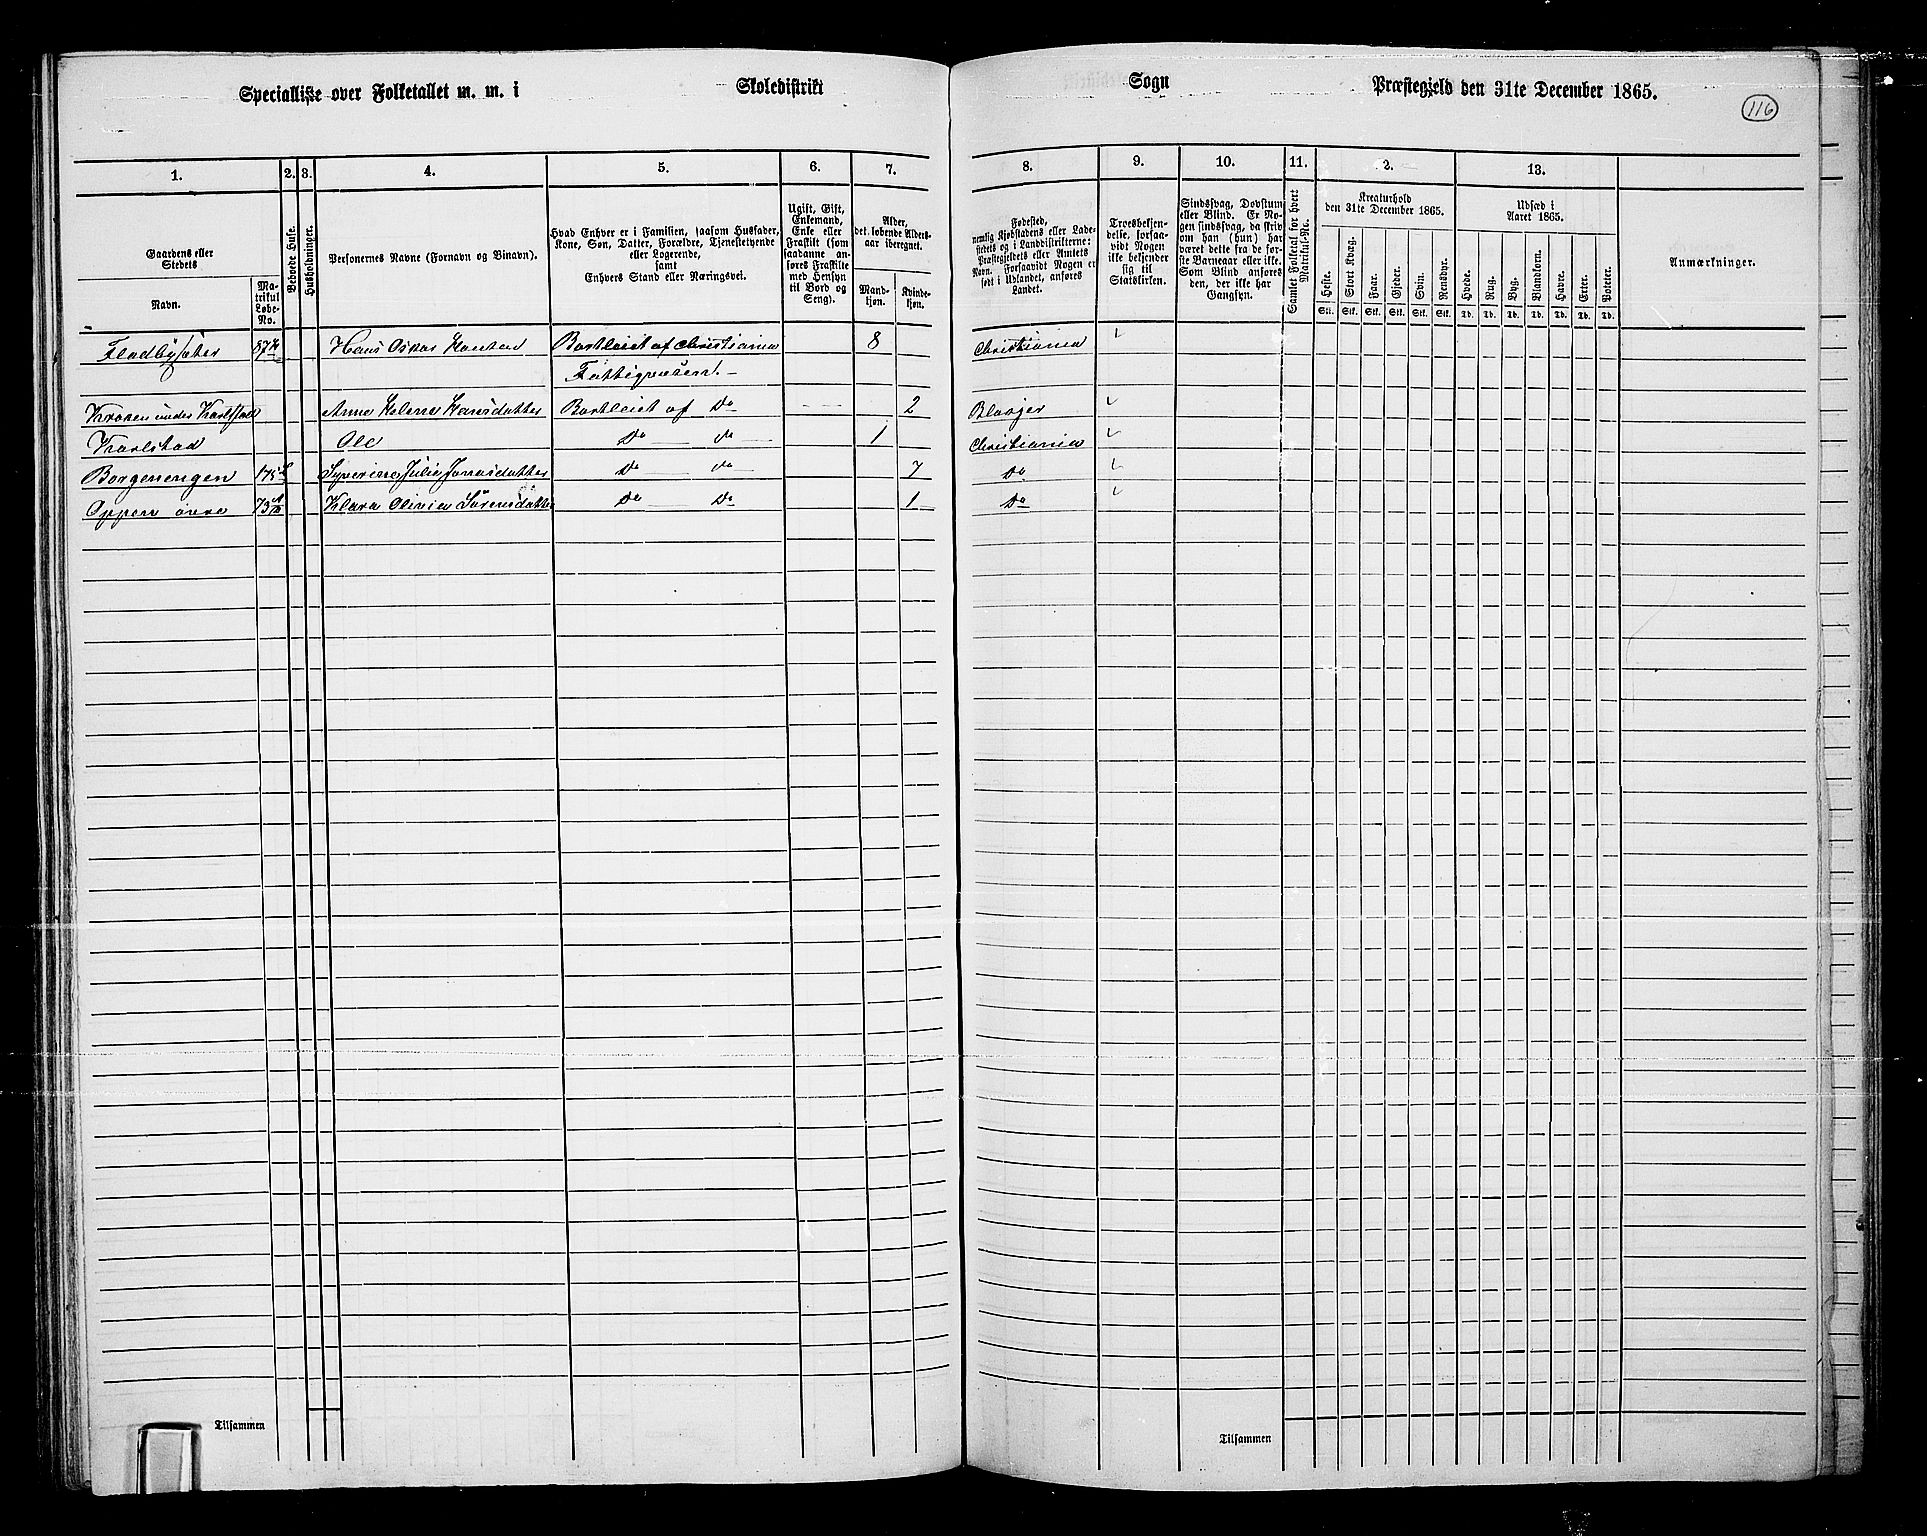 Specialliste over Folketallet m. m. i Skoledistrikt Sogn Præstegjeld den 31te December 1865.
116
1. 2. 3. 4. 5. 6. 7. 8. 9. 10. 11. 2. 13.
Gaardens eller Stedets
Navn.
Matrikul Løbe-No.
Beboede Huse.
Husholdninger.
Personernes Navne (Fornavn og Binavn).
Hvad Enhver er i Familien, saasom Husfader,
Kone, Søn, Datter, Forældre, Tjenestetyende
eller Logerende,
samt
Enhvers Stand eller Næringsvei.
Ugift, Gift,
Enkemand,
Enke eller
Fraskilt (som
saadanne an-
føres Fraskilte
med Hensyn
til Bord og
Seng).
Alder,
det løbende Alders-
aar iberegnet.
Mand-
kjøn.
Kvinde-
kjøn.
Fødested,
nemlig Kjøbstadens eller Lade-
stedets og i Landdistrikterne:
Præstegjeldets eller Amtets
Navn. Forsaavidt Nogen er
født i Udlandet, anføres
Landet.
Troesbekjen-
delse, forsaa-
vidt Nogen
ikke bekjender
sig til
Statskirken.
Sindssvag, Døvstum
eller Blind. Er No-
gen sindssvag, da skriv
om han (hun) har
været dette fra de før-
ste Barneaar eller ikke.
Som Blind anføres
den, der ikke har
Gangsyn.
Samlet Folketal for hvert Matrikul-No.
Kreaturhold
den 31te December 1865.
Heste. Stort Kvæg. Faar. Gjeder. Svin. Rensdyr.
Stk. Stk. Stk. Stk. Stk. Stk.
Udsæd i
Aaret 1865.
Hvede. Rug. Byg. Blandkorn. Havre. Erter. Poteter.
Td. Td. Td. Td. Td. Td. Td.
Anmærkninger.
Fladbysæter 87 Hans Oskar Bortleiet af Christiania 8 Christiania
Fattigvæsen.
under Karlstad Anne Helene Hansdatter Bortleiet af Do 2 Blakjer
Karlstad Ole Do do 1 Christiania
Borgenengen 175 Julie Jonasdatter Do do 7 Do
Oppen øvre 73 Klara Olivia Sørensdatter Do Do 1 Do
Tilsammen
Tilsammen